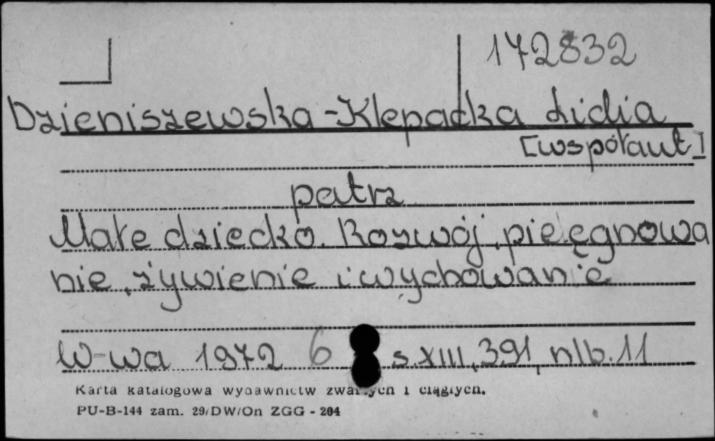 172832
Dzieniszewska-Klepacka Lidia
[współaut]
patrz
Małe dziecko. Rozwój, pielęgnowa
nie, żywienie i wychowanie
W-wa 1972 6 s. XIII, 391, nlb. 11
Karta katalogowa wydawnictw zwartych i ciągłych.
PU-B-144 zam. 29/DW/On ZGG - 204